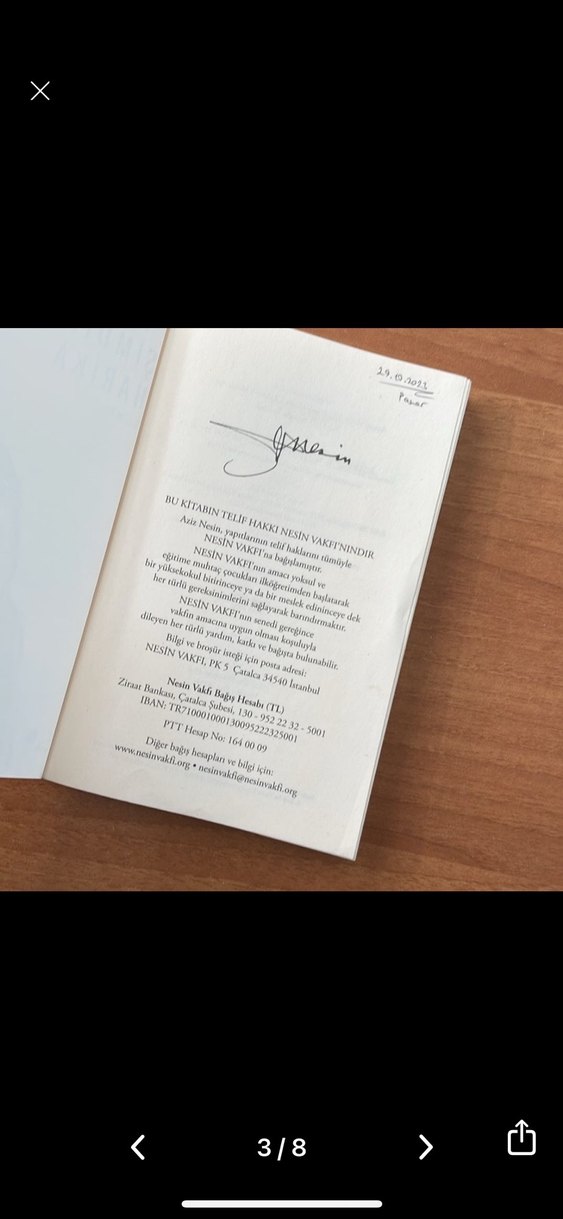 29.10.2023
Pazar
BU KİTABIN TELİF HAKKI NESİN VAKFI'NINDIR
Aziz Nesin, yapıtlarının telif haklarını tümüyle
NESİN VAKFI'na bağışlamıştır.
NESİN VAKFI'nın amacı yoksul ve
eğitime muhtaç çocukları ilköğretimden başlatarak
bir yüksekokul bitirinceye ya da bir meslek edininceye dek
her türlü gereksinimlerini sağlayarak barındırmaktır.
NESİN VAKFI'nın senedi gereğince
vakfın amacına uygun olması koşuluyla
dileyen her türlü yardım, katkı ve bağışta bulunabilir.
Bilgi ve broşür isteği için posta adresi:
NESİN VAKFI, PK 5 Çatalca 34540 İstanbul
Nesin Vakfı Bağış Hesabı (TL)
Ziraat Bankası, Çatalca Şubesi, 130 - 952 22 32 - 5001
IBAN: TR710001000130095222325001
PTT Hesap No: 164 00 09
Diğer bağış hesapları ve bilgi için:
www.nesinvakfi.org • nesinvakfi@nesinvakfi.org
3 / 8